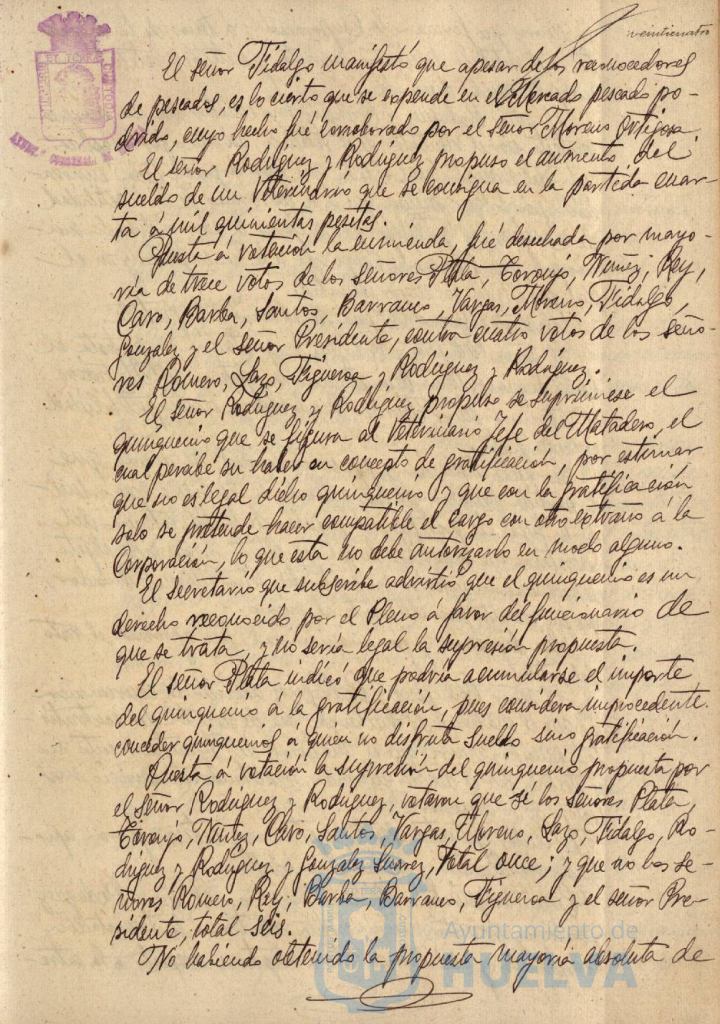 veinticuatro
El señor Fidalgo manifestó que apesar de los reconocedores
de pescados, es lo cierto que se expende en el Mercado pescado po-
drido, cuyo hecho fué corroborado por el señor Moreno Ortigosa.
El señor Rodríguez y Rodríguez propuso el aumento del
sueldo de un Veterinario que se consigna en la partida cuar-
ta á mil quinientas pesetas.
Puesta á votación la enmienda, fué desechada por mayo-
ría de trece votos de los señores Plata, Coronjo, Nuñez, Rey,
Caro, Barba, Santos, Barranco, Vargas, Moreno, Fidalgo,
Gonzalez y el señor Presidente, contra cuatro votos de los seño-
res Romero, Lazo, Figueroa y Rodríguez y Rodríguez.
El señor Rodríguez y Rodríguez propuso se suprimiese el
quinquenio que se figura al Veterinario Jefe del Matadero, el
cual percibe su haber en concepto de gratificación, por estimar
que no es legal dicho quinquenio y que con la gratificación
solo se pretende hacer compatible el cargo con otro extraño á la
Corporación, lo que esta no debe autorizarlo en modo alguno.
El Secretario que subscribe advirtió que el quinquenio es un
derecho reconocido por el Pleno á favor del funcionario de
que se trata, y no sería legal la supresión propuesta.
El señor Plata indicó que podría acumularse el importe
del quinquenio á la gratificación, pues considera improcedente
conceder quinquenios á quien no disfruta sueldo sino gratificación.
Puesta á votación la supresión del quinquenio propuesta por
el señor Rodríguez y Rodríguez, votaron que sí los señores Plata,
Coronjo, Nuñez, Caro, Santos, Vargas, Moreno, Lazo, Fidalgo, Ro-
driguez y Rodríguez y Gonzalez Suarez, total once; y que no los se-
ñores Romero, Rey, Barba, Barranco, Figueroa y el señor Pre-
sidente, total seis.
No habiendo obtenido la propuesta mayoría absoluta de
Ayuntamiento de
HUELVA